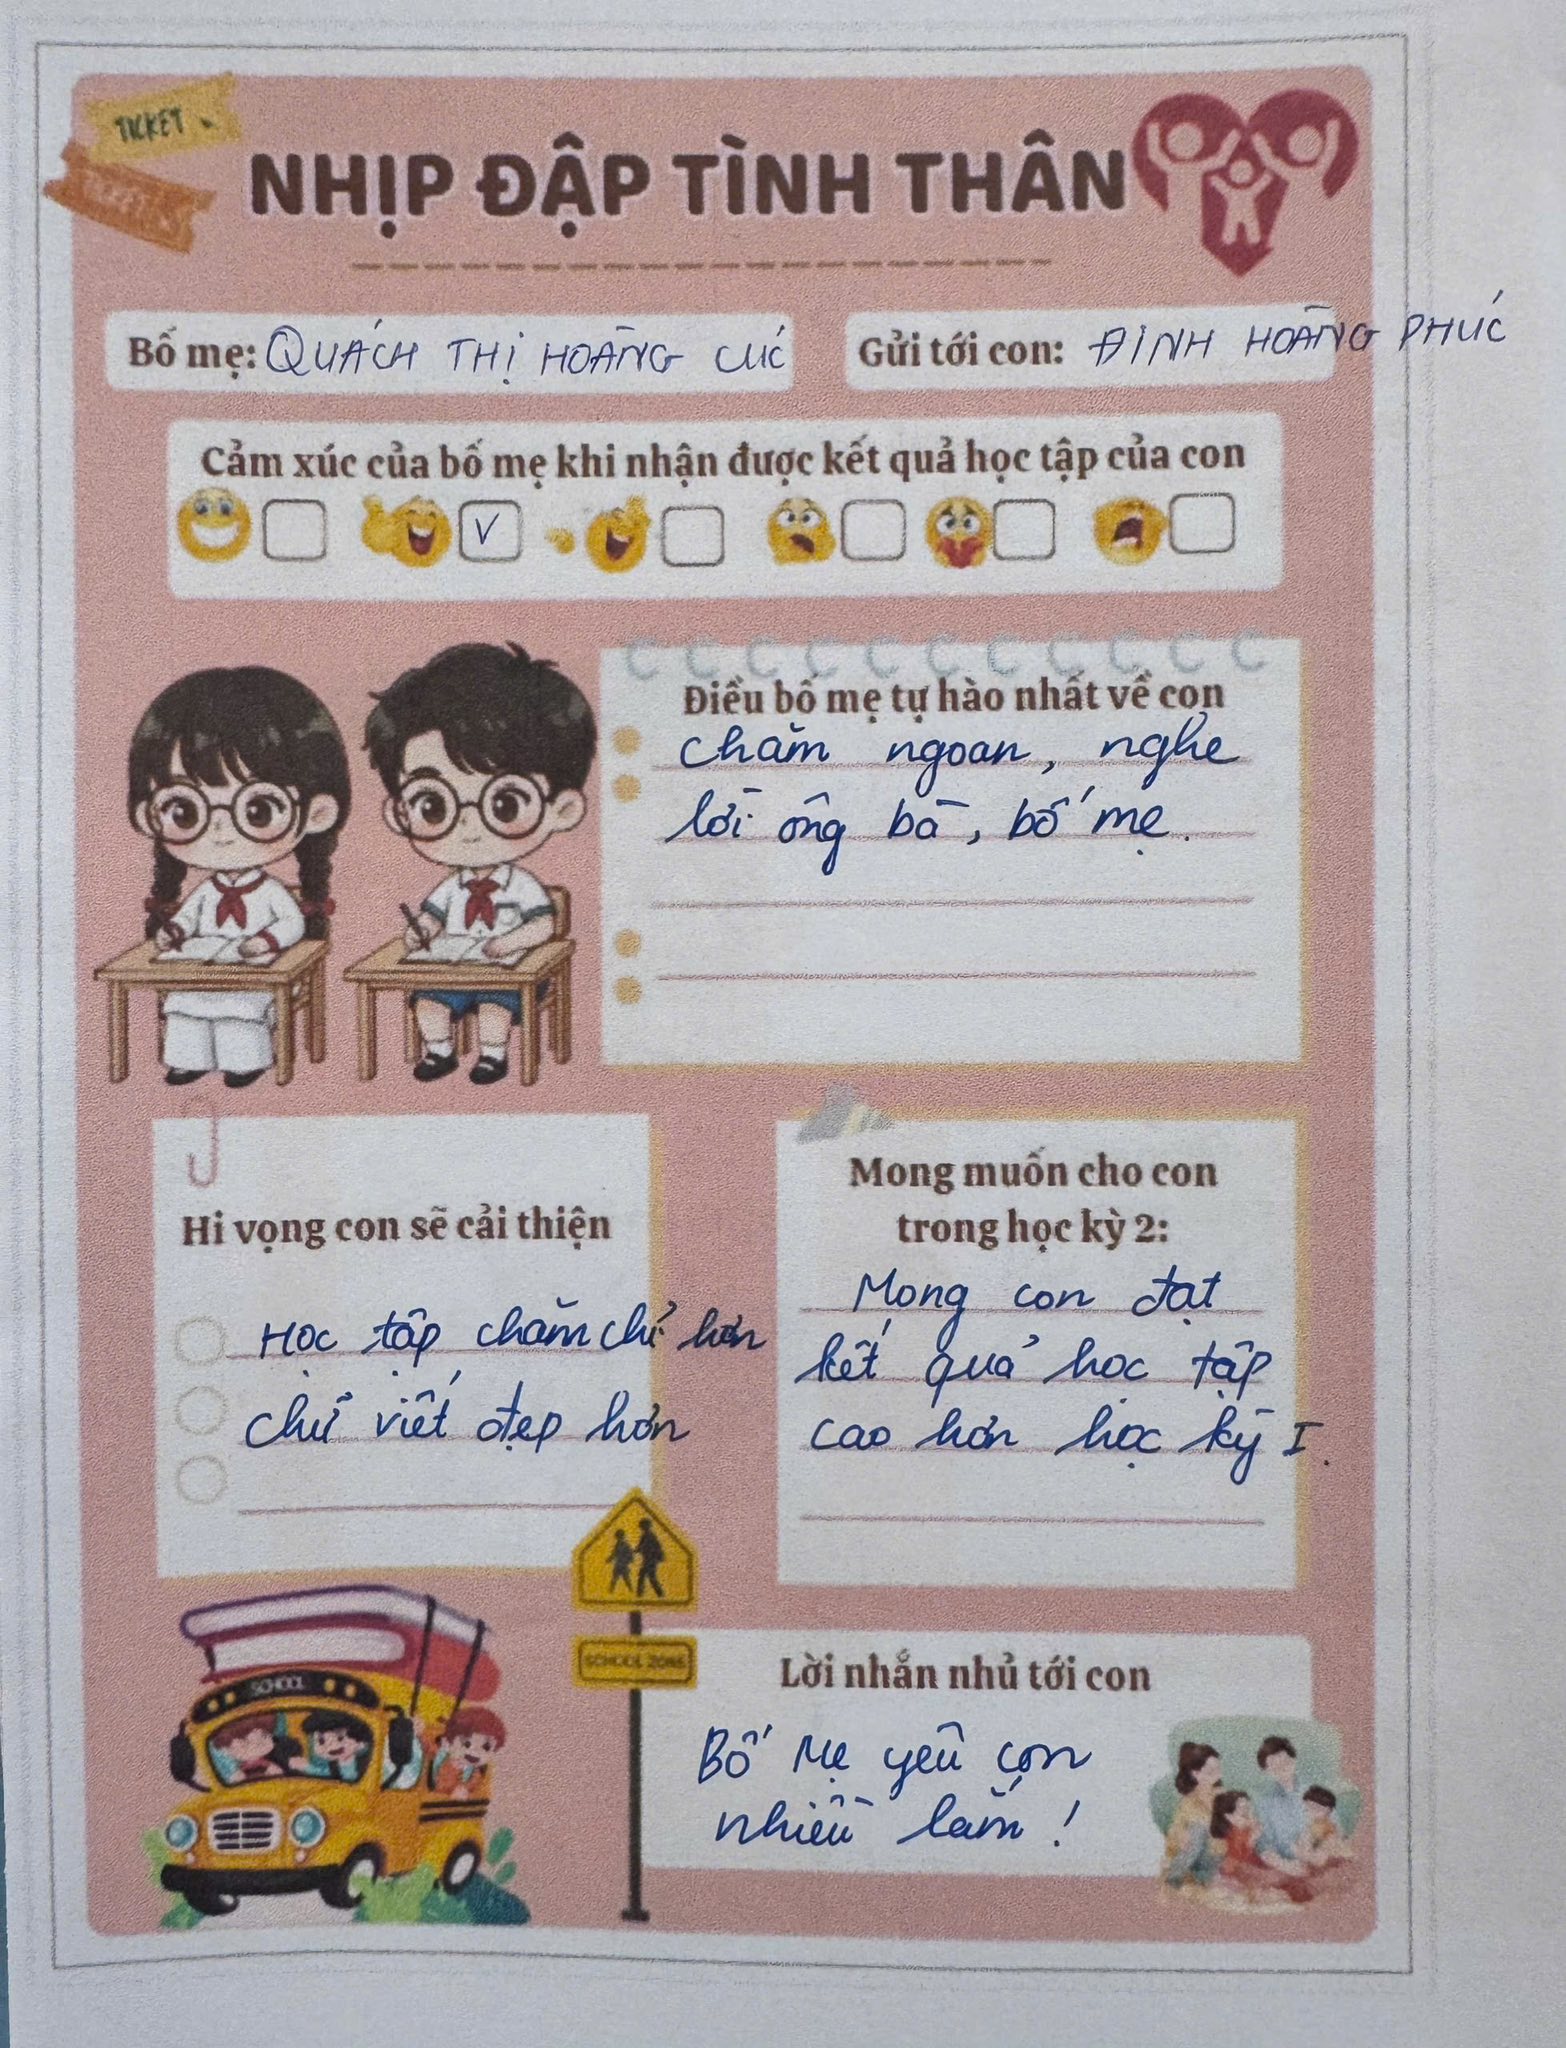 TICKET
TICKET
NHỊP ĐẬP TÌNH THÂN
Bố mẹ: QUÁCH THỊ HOÀNG CÚC
Gửi tới con: ĐINH HOÀNG PHÚC
Cảm xúc của bố mẹ khi nhận được kết quả học tập của con
V
Điều bố mẹ tự hào nhất về con
Chăm ngoan, nghe
lời ông bà, bố mẹ.
Hi vọng con sẽ cải thiện
Học tập chăm chỉ hơn
chữ viết đẹp hơn
Mong muốn cho con
trong học kỳ 2:
Mong con đạt
kết quả học tập
cao hơn học kỳ I.
SCHOOL
SCHOOL ZONE
Lời nhắn nhủ tới con
Bố Mẹ yêu con
nhiều lắm!